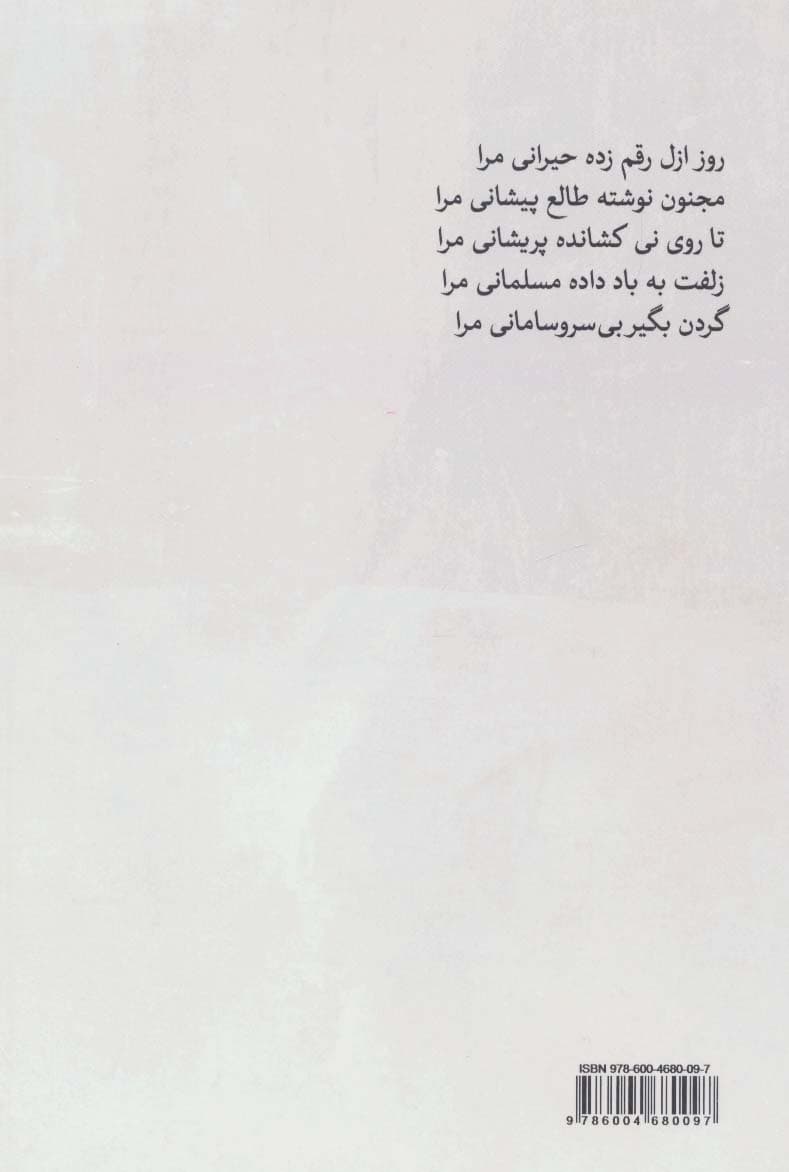 روز ازل رقم زده حیرانی مرا
مجنون نوشته طالع پیشانی مرا
تا روی نی کشانده پریشانی مرا
زلفت به باد داده مسلمانی مرا
گردن بگیر بی‌سروسامانی مرا
ISBN 978-600-4680-09-7
9 786004 680097